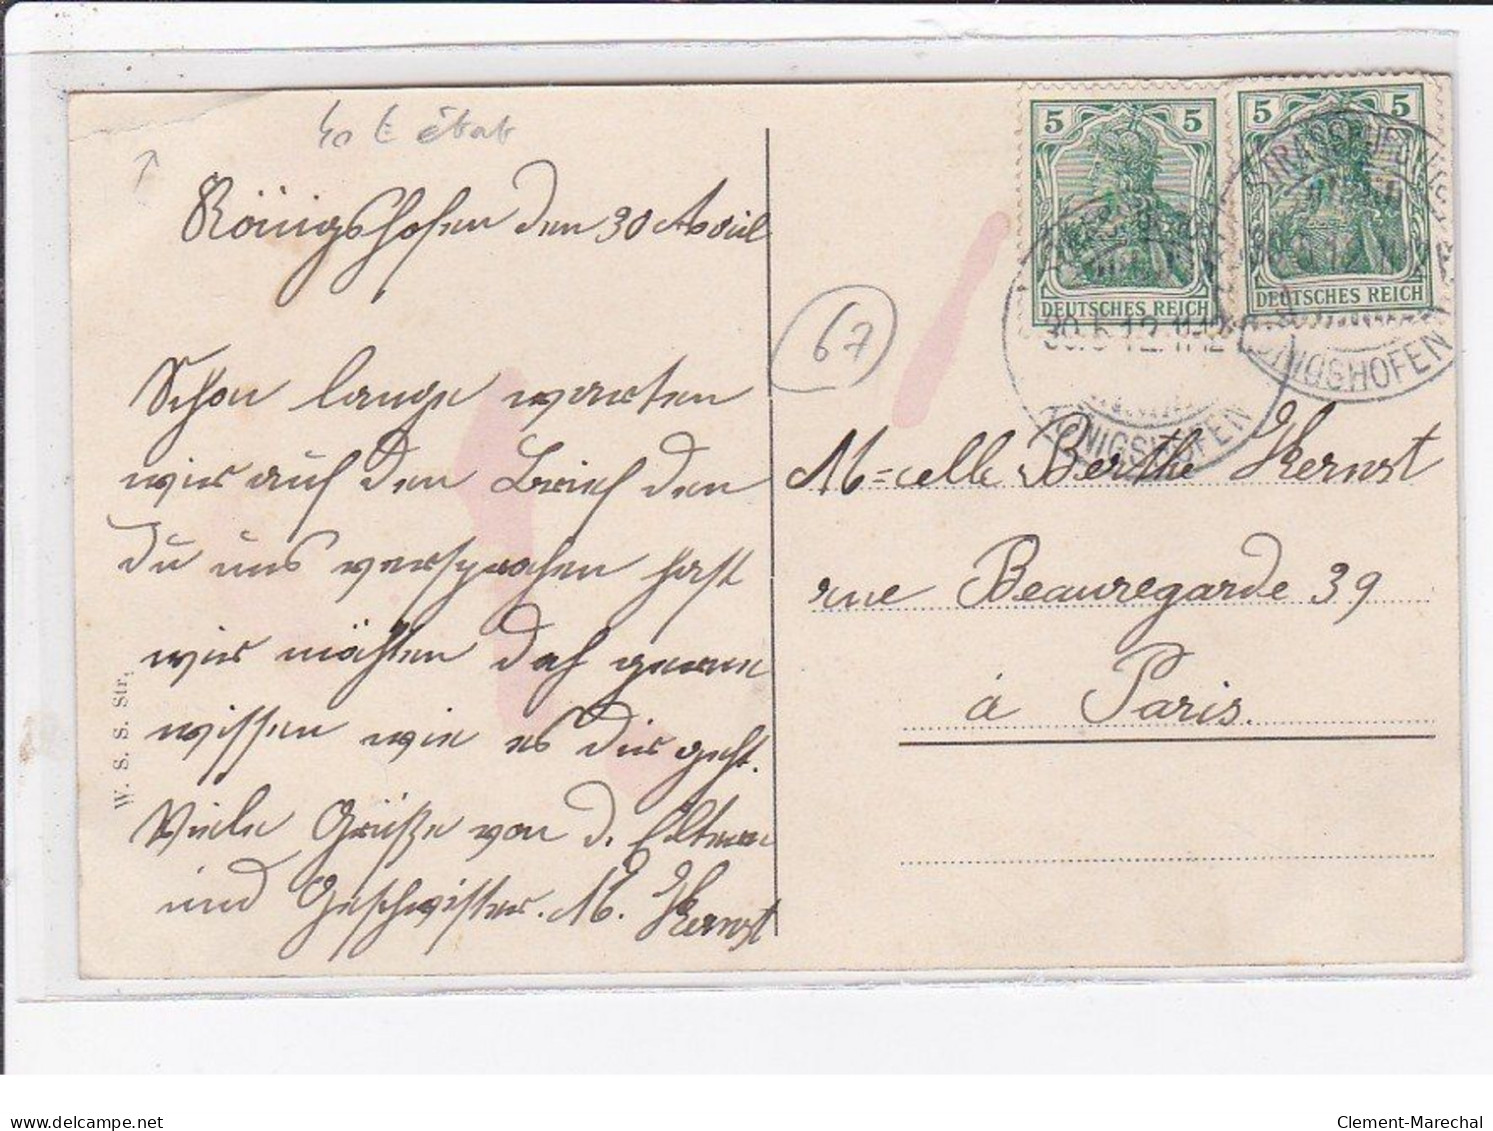 40 € état
Königshofen den 30 April
67
Schon lange warten
wir auf den Brief den
Du uns versprochen hast
wir möchten doch gerne
wissen wie es Dir geht.
Viele Grüße von d. Eltern
und Geschwister. M. Kernst
W. S. S. Str.
5 5
DEUTSCHES REICH
5 5
DEUTSCHES REICH
30.5.12.11-12
KÖNIGSHOFEN
STRASSBURG
KÖNIGSHOFEN
M=celle Berthe Kernst
rue Beauregarde 39
à Paris.
delcampe.net
Clement-Marechal